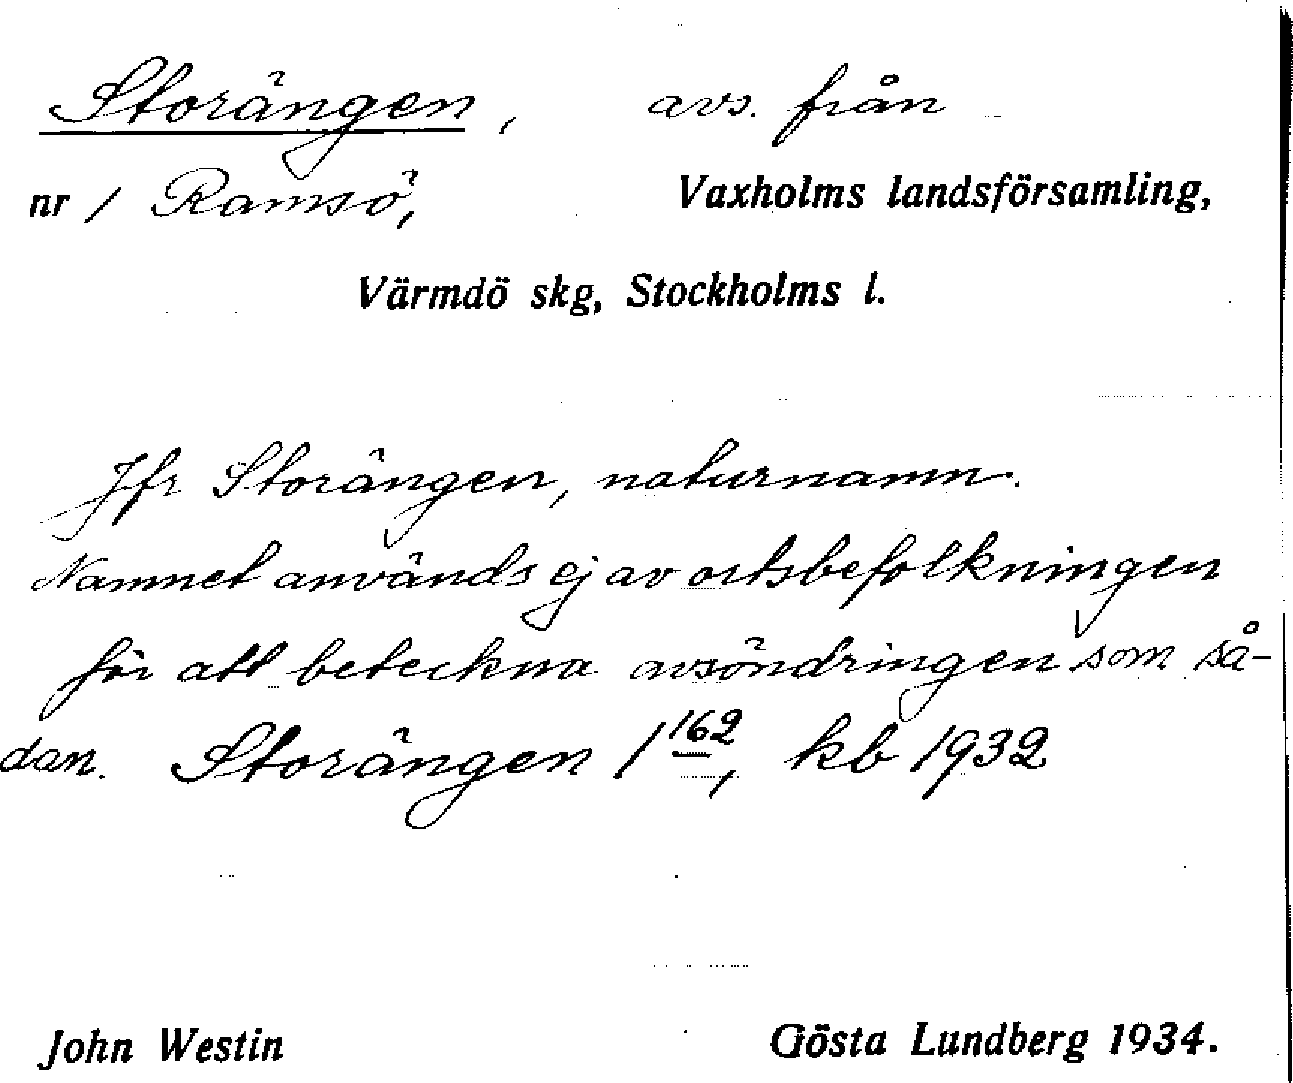 Storängen, avs. från
nr 1 Ramsö, Vaxholms landsförsamling,
Värmdö skg, Stockholms l.
Jfr Storängen, naturnamn.
Namnet används ej av ortsbefolkningen
för att beteckna avsöndringen som så-
dan. Storängen 1 162, kb 1932
John Westin Gösta Lundberg 1934.